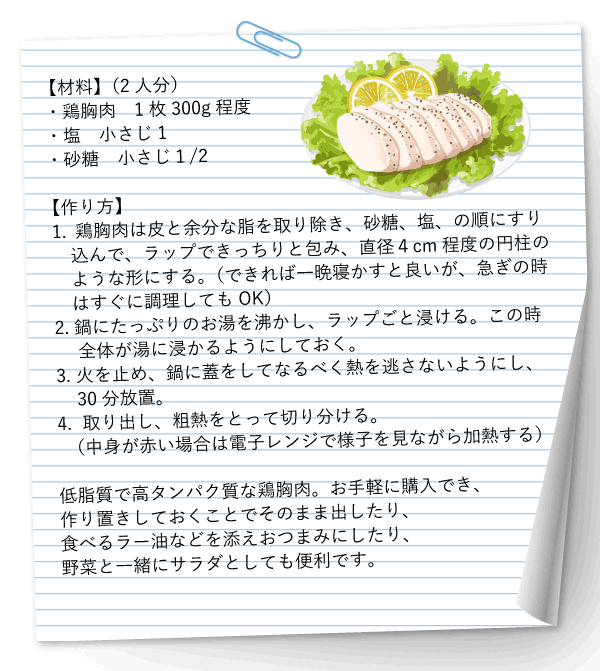 【材料】（2人分）
・鶏胸肉　1枚300g程度
・塩　小さじ1
・砂糖　小さじ1/2
【作り方】
1. 鶏胸肉は皮と余分な脂を取り除き、砂糖、塩、の順にすり
込んで、ラップできっちりと包み、直径4cm程度の円柱の
ような形にする。（できれば一晩寝かすと良いが、急ぎの時
はすぐに調理してもOK）
2. 鍋にたっぷりのお湯を沸かし、ラップごと浸ける。この時
全体が湯に浸かるようにしておく。
3. 火を止め、鍋に蓋をしてなるべく熱を逃さないようにし、
30分放置。
4. 取り出し、粗熱をとって切り分ける。
（中身が赤い場合は電子レンジで様子を見ながら加熱する）
低脂質で高タンパク質な鶏胸肉。お手軽に購入でき、
作り置きしておくことでそのまま出したり、
食べるラー油などを添えおつまみにしたり、
野菜と一緒にサラダとしても便利です。